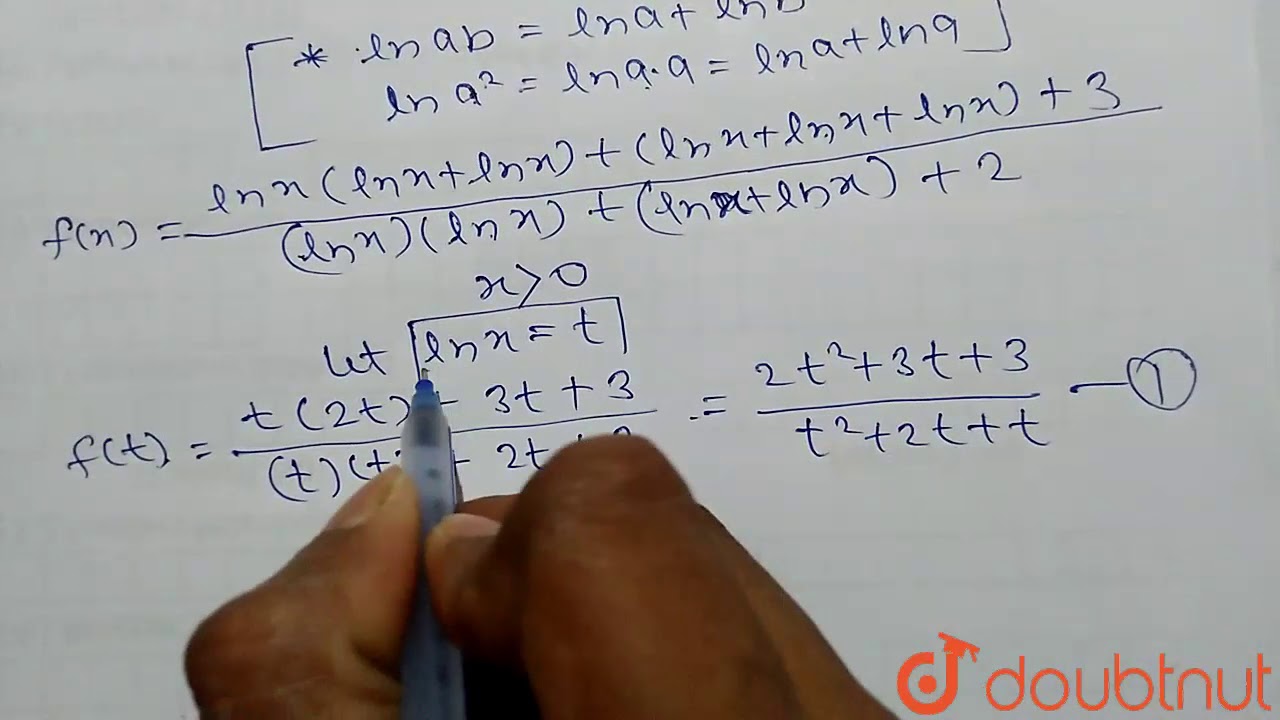 [ * ln ab = ln a + ln b
ln a² = ln a·a = ln a + ln a ]
f(x) = ln x (ln x + ln x) + (ln x + ln x + ln x) + 3 / (ln x)(ln x) + (ln x + ln x) + 2
x > 0
let ln x = t
f(t) = t(2t) + 3t + 3 / (t)(t) + 2t + 2 = 2t² + 3t + 3 / t² + 2t + t — ①
doubtnut